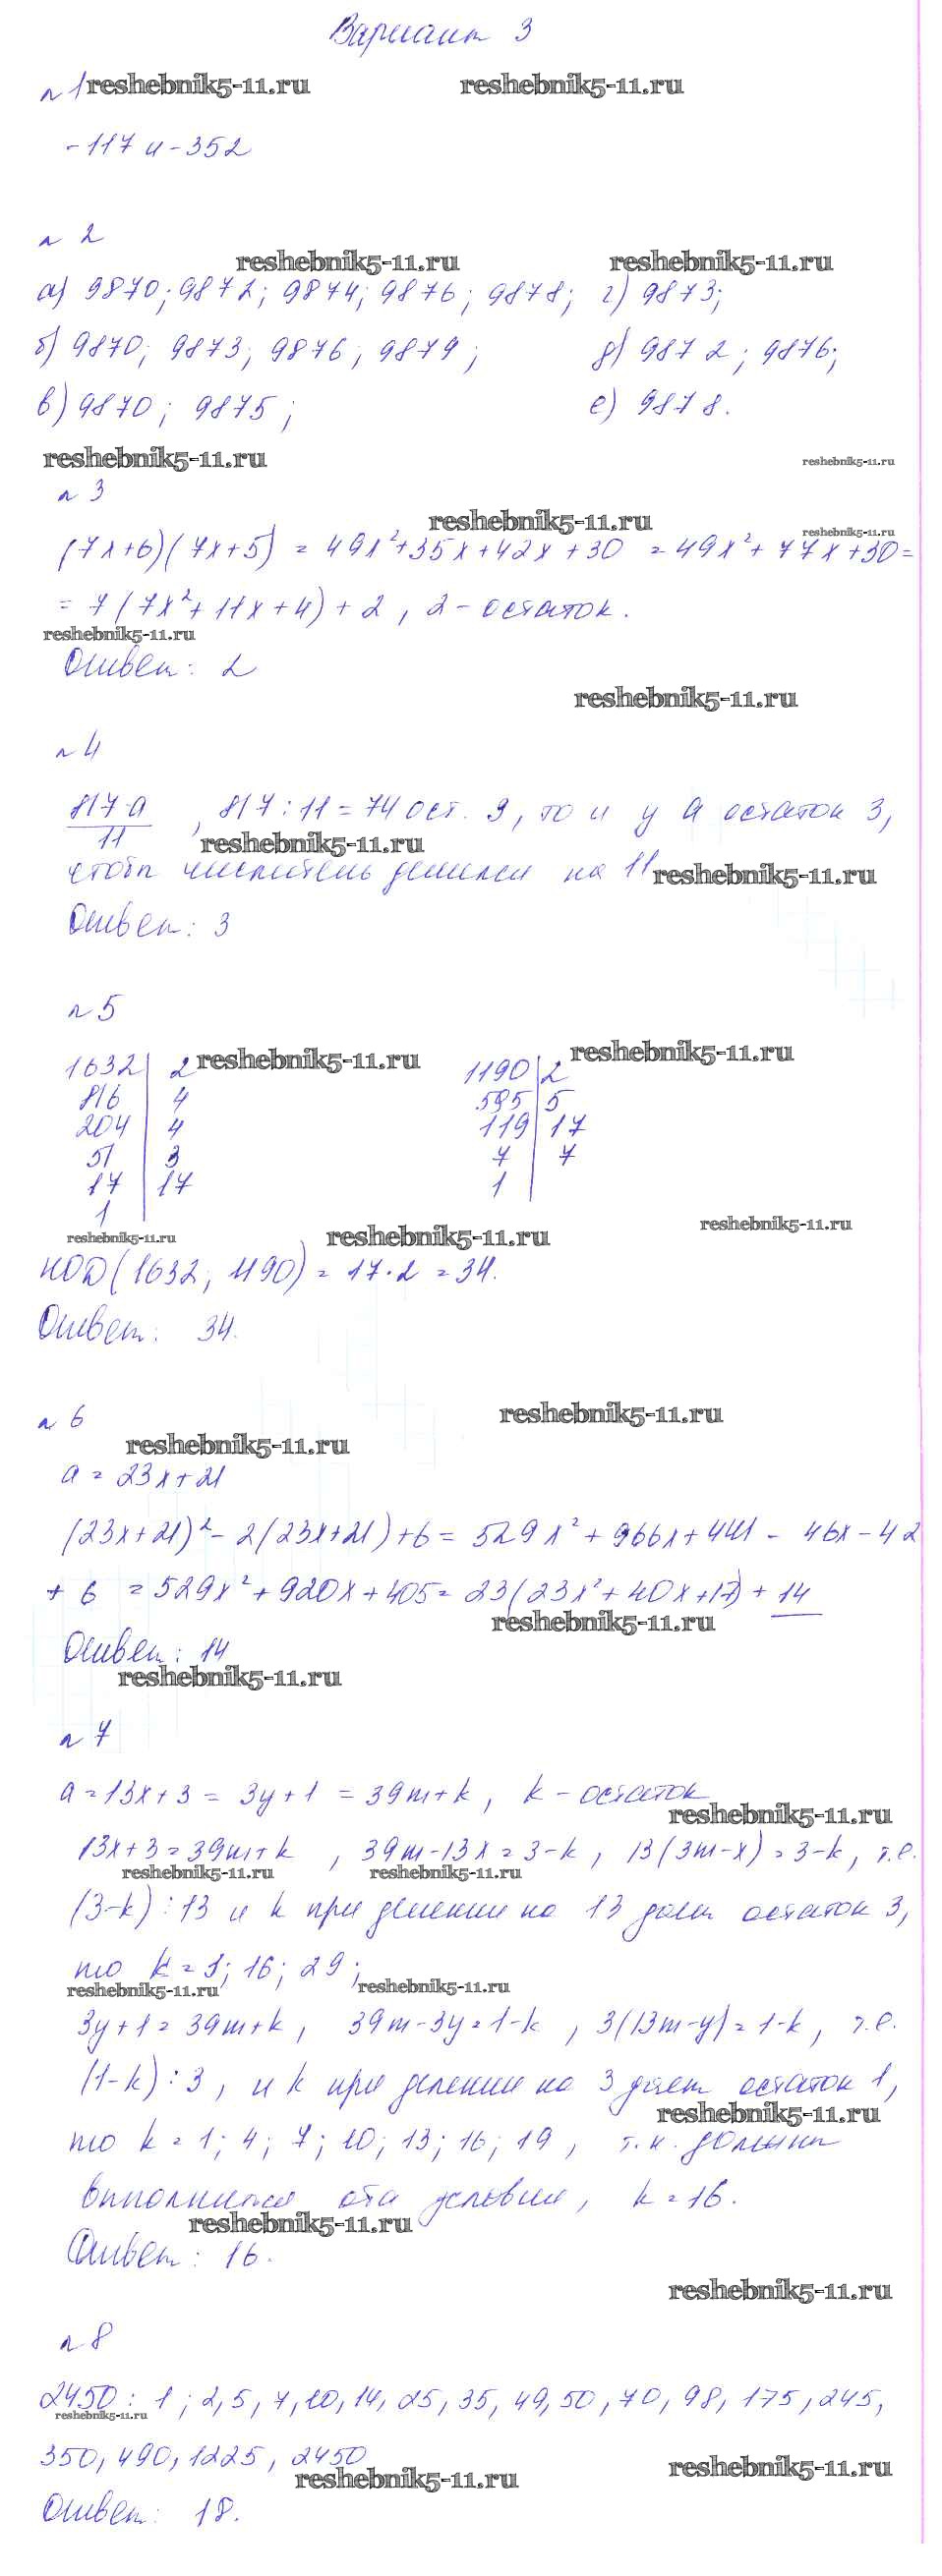 Вариант 3
n 1 reshebnik5-11.ru reshebnik5-11.ru
-117 и -352
n 2
reshebnik5-11.ru reshebnik5-11.ru
а) 9870; 9872; 9874; 9876; 9878; г) 9873;
б) 9870; 9873; 9876; 9879; д) 9872; 9876;
в) 9870; 9875; е) 9878.
reshebnik5-11.ru reshebnik5-11.ru
n 3
reshebnik5-11.ru reshebnik5-11.ru
(7x+6)(7x+5) = 49x²+35x+42x+30 = 49x²+77x+30=
= 7(7x²+11x+4)+2, 2 - остаток.
reshebnik5-11.ru
Ответ: 2
reshebnik5-11.ru
n 4
817-a/11, 817:11=74 ост. 3, то и у a остаток 3,
reshebnik5-11.ru
чтобы числитель делился на 11 reshebnik5-11.ru
Ответ: 3
n 5
1632 | 2 reshebnik5-11.ru 1190 | 2 reshebnik5-11.ru
816 | 4 595 | 5
204 | 4 119 | 17
51 | 3 7 | 7
17 | 17 1
1
reshebnik5-11.ru reshebnik5-11.ru reshebnik5-11.ru
НОД(1632; 1190) = 17·2 = 34.
Ответ: 34.
n 6 reshebnik5-11.ru
reshebnik5-11.ru
a = 23x+21
(23x+21)²-2(23x+21)+6 = 529x²+966x+441-46x-42
+6 = 529x²+920x+405 = 23(23x²+40x+17)+14
reshebnik5-11.ru
Ответ: 14
reshebnik5-11.ru
n 7
a=13x+3 = 3y+1 = 39m+k, k - остаток
reshebnik5-11.ru
13x+3=39m+k, 39m-13x=3-k, 13(3m-x)=3-k, т.е.
reshebnik5-11.ru reshebnik5-11.ru
(3-k)⋮13 и k при делении на 13 дает остаток 3,
то k=3; 16; 29;
reshebnik5-11.ru reshebnik5-11.ru
3y+1=39m+k, 39m-3y=1-k, 3(13m-y)=1-k, т.е.
(1-k)⋮3, и k при делении на 3 дает остаток 1,
reshebnik5-11.ru
то k=1; 4; 7; 10; 13; 16; 19, т.к. должны
выполнится оба условия, k=16.
reshebnik5-11.ru
Ответ: 16.
reshebnik5-11.ru
n 8
2450: 1; 2, 5, 7, 10, 14, 25, 35, 49, 50, 70, 98, 175, 245,
reshebnik5-11.ru
350, 490, 1225, 2450
reshebnik5-11.ru reshebnik5-11.ru
Ответ: 18.